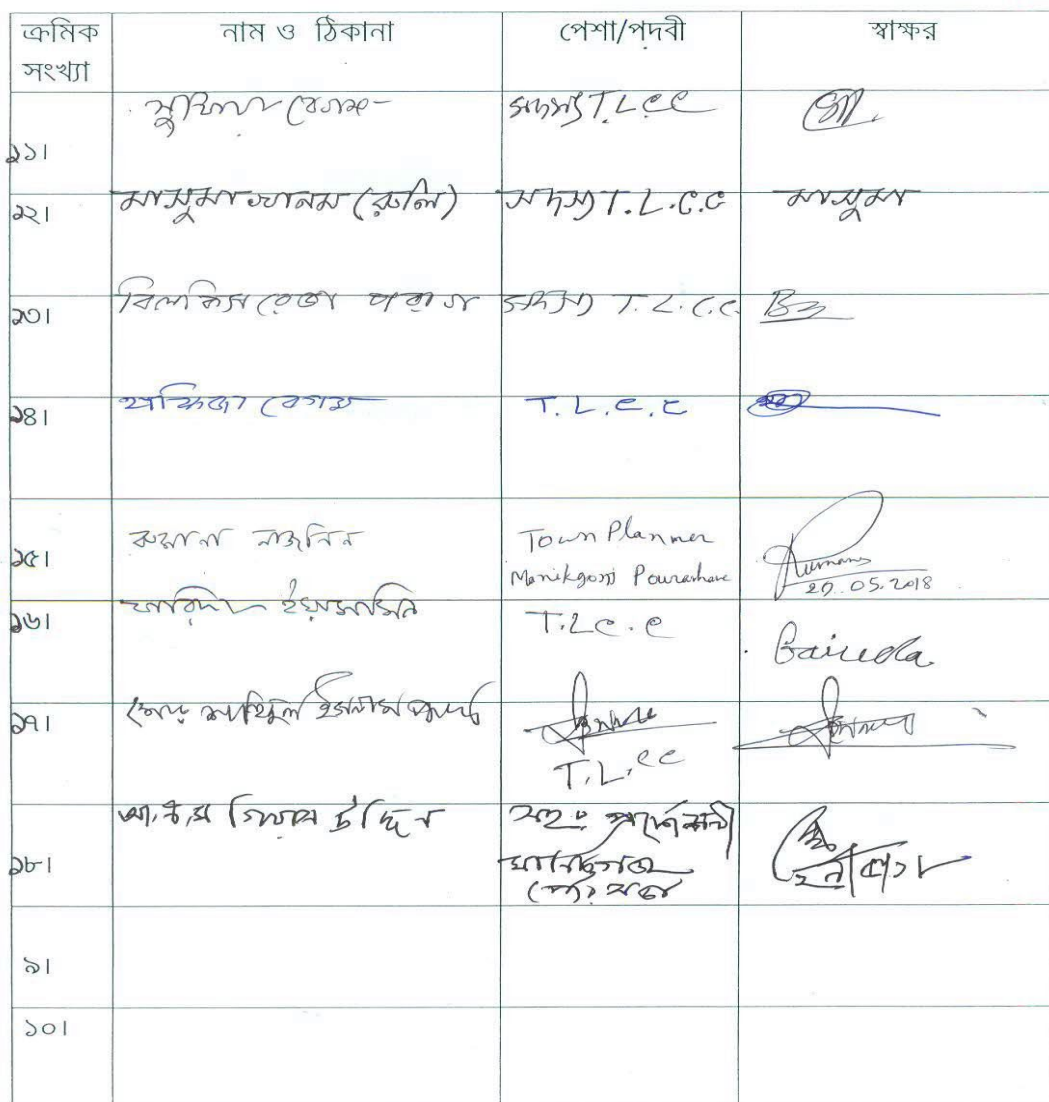 ক্রমিক সংখ্যা নাম ও ঠিকানা পেশা/পদবী স্বাক্ষর
বেগম সদস্য T.L.C.C
১১।
১২। মাসুমা খানম (রুলি) সদস্য T.L.C.C মাসুমা
১৩। বিলকিস রেজা পরাগ সদস্য T.L.C.C.
১৪। হাফিজা বেগম T.L.C.C
১৫। রুমানা নাজনিন Town Planner
Manikgonj Pourashava Rumana
27.05.2018
১৬। ফারিদা ইয়াসমিন T.L.C.C Fairuda
১৭। মোঃ ইসলাম
T.L.CC
১৮। আ,ক,ম গিয়াস উদ্দিন সহঃ প্রকৌশলী
মানিকগঞ্জ
পৌরসভা
৯।
১০।